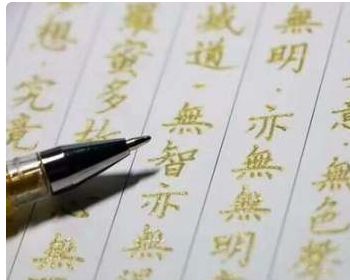 意·無色聲
無明·亦無無明
滅道·無智亦無
羅蜜多故 無
想·究竟